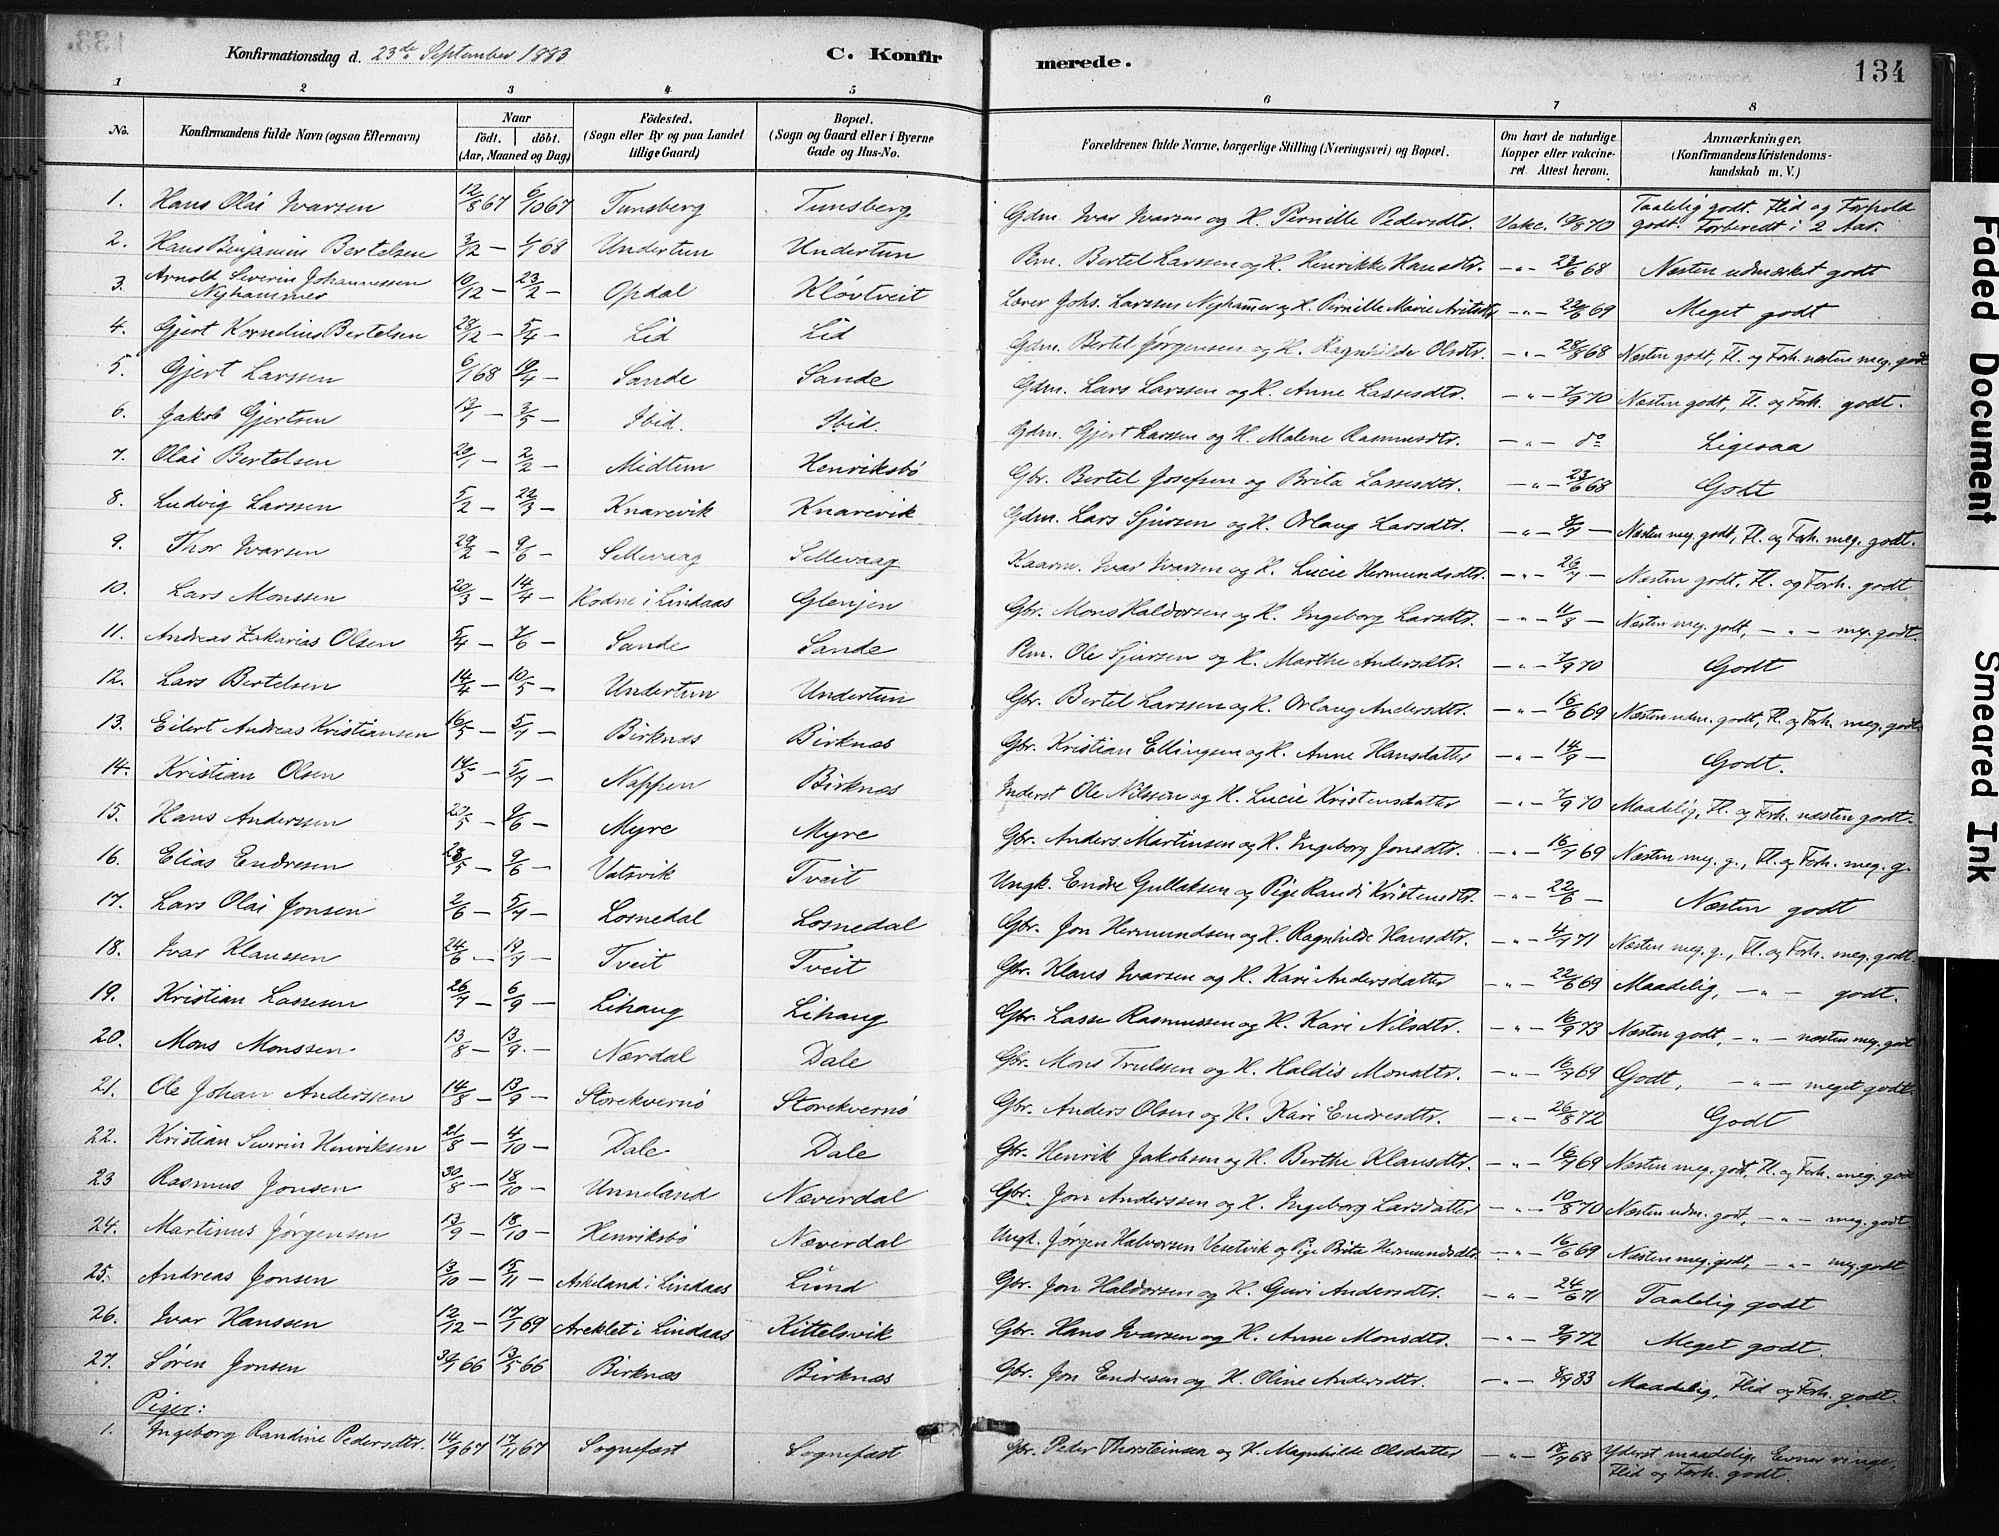 Konfirmationsdag d. 23de September 1883 C. Konfirmerede. 134
1 2 3 4 5 6 7 8
No. Konfirmandens fulde Navn (ogsaa Efternavn) Naar födt. döbt. (Aar, Maaned og Dag) Födested. (Sogn eller By og paa Landet tillige Gaard) Bopæl. (Sogn og Gaard eller i Byerne Gade og Hus-No. Forældrenes fulde Navne, borgerlige Stilling (Næringsvei) og Bopæl. Om havt de naturlige Kopper eller vakcineret. Attest herom. Anmærkninger. (Konfirmandens Kristendomskundskab m. V.)
1. Hans Olai Ivarsen 12/8 67 6/10 67 Tunsberg Tunsberg Gdm. Ivar Ivarsen og H. Pernille Pedersdtr. Vakc. 19/8 70 Taalelig godt. Flid og Forhold godt. Forberedt i 2 Aar.
2. Hans Benjamin Bertelsen 3/12 — 6/1 68 Undertun Undertun Pm. Bertel Larssen og H. Henrikke Hansdtr. —"— 23/6 68 Næsten udmærket godt
3. Arnold Severin Johannessen Nyhammer 10/12 — 23/2 — Opdal Kløvtveit Lærer Johs. Larssen Nyhamer og H. Pernille Marie Arilsdtr —"— 22/6 69 Meget godt
4. Gjert Kornelius Bertelsen 28/12 — 5/4 — Lid Lid Gdm. Bertel Jørgensen og H. Ragnhilde Olsdtr. —"— 28/8 68 Næsten godt, Fl. og Forh. næsten meg. godt
5. Gjert Larssen 6/1 68 19/4 — Sande Sande Gdm. Lars Larssen og H. Anne Lassesdtr. —"— 7/9 70 Næsten godt, Fl. og Forh. godt.
6. Jakob Gjertsen 13/1 — 3/5 — Ibid. Ibid. Gdm. Gjert Larssen og H. Malene Rasmusdtr. —"— do Ligesaa
7. Olai Bertelsen 20/1 — 2/2 — Midtun Henriksbö Gbr. Bertel Josefsen og Brita Lassesdtr. —"— 23/6 68 Godt
8. Ludvig Larssen 5/2 — 22/3 — Knarevik Knarevik Gdm. Lars Sjursen og H. Orlaug Larsdtr. —"— 9/7 — Næsten meg. godt, Fl. og Forh. meg. godt.
9. Thor Ivarsen 29/2 — 9/6 — Sellevaag Sellevaag Kaarm. Ivar Ivarsen og H. Lucie Hermundsdtr. —"— 26/7 — Næsten godt, Fl. og Forh. godt
10. Lars Monssen 20/3 — 14/4 — Kodne i Lindaas Glenjen Gbr. Mons Haldorsen og H. Ingeborg Larsdtr. —"— 11/8 — Næsten meg. godt, —"— meg. godt.
11. Andreas Zakarias Olsen 5/4 — 7/6 — Sande Sande Pm. Ole Sjursen og H. Marthe Andersdtr. —"— 7/9 70 Godt
12. Lars Bertelsen 14/4 — 10/5 — Undertun Undertun Gbr. Bertel Larssen og H. Orlaug Andersdtr. —"— 16/6 69 Næsten udm. godt, Fl. og Forh. meg. godt.
13. Eilert Andreas Kristiansen 16/5 — 5/7 — Birknæs Birknæs Gbr. Kristian Ellingsen og H. Anne Hansdatter —"— 14/9 — Godt.
14. Kristian Olsen 14/5 — 5/7 — Nappen Birknæs Inderst Ole Nilssen og H. Lucie Kristensdatter —"— 7/9 70 Maadelig, Fl. og Forh. næsten godt.
15. Hans Anderssen 22/5 — 9/6 — Myre Myre Gbr. Anders Martinsen og H. Ingeborg Jonsdtr. —"— 16/7 69 Næsten meg. g., Fl. og Forh. meg. g.
16. Elias Endresen 28/5 — 9/6 — Vatsvik Tveit Ungk. Endre Gullaksen og Pige Randi Kristensdtr. —"— 22/6 — Næsten godt
17. Lars Olai Jonsen 2/6 — 5/7 — Losnedal Losnedal Gbr. Jon Hermundsen og H. Ragnhilde Hansdtr. —"— 4/7 71 Næsten meg. g., Fl. og Forh. meg. godt.
18. Ivar Klaussen 24/6 — 19/7 — Tveit Tveit Gbr. Klaus Ivarsen og H. Kari Andersdatter —"— 22/6 69 Maadelig, —"— godt.
19. Kristian Lassesen 26/7 — 6/9 — Lihaug Lihaug Gbr. Lasse Rasmussen og H. Kari Nilsdtr. —"— 16/9 73 Næsten godt, —"— næsten meg. godt
20. Mons Monssen 13/8 — 13/9. — Nærdal Dale Gbr. Mons Trulssen og H. Haldis Monsdtr. —"— 16/7 69 Godt, —"— meget godt.
21. Ole Johan Anderssen 14/8 — 13/9 — Storekvernö Storekvernö Gbr. Anders Olsen og H. Kari Endresdtr. —"— 26/8 72 Godt
22. Kristian Severin Henriksen 21/8 — 4/10 — Dale Dale Gbr. Henrik Jakobsen og H. Berthe Klausdtr. —"— 16/7 69 Næsten meg. godt, Fl. og Forh. meg. godt
23 Rasmus Jonsen 30/8 — 18/10 — Unneland Næverdal Gbr. Jon Anderssen og H. Ingeborg Larsdatter —"— 10/8 70 Næsten udm. godt, —"— meg. godt.
24. Martinus Jørgensen 13/9 — 18/10 — Henriksbö Næverdal Ungk. Jørgen Halvorsen Vesetvik og Pige Brita Hermundsdtr —"— 16/6 69 Næsten meg. godt, —"— meg. godt
25. Andreas Jonsen 13/10 — 15/11 — Askeland i Lindaas Lund Gbr. Jon Haldorsen og H. Guri Andersdtr. —"— 24/6 71 Taalelig godt
26. Ivar Hanssen 12/12 — 17/1 69 Areklet i Lindaas Kittelsvik Gbr. Hans Ivarsen og H. Anne Monsdtr. —"— 9/9 72 Meget godt.
27. Søren Jonsen 30/1 66 13/5 66 Birknæs Birknæs Gbr. Jon Endresen og H. Oline Andersdtr. —"— 8/9 83 Maadelig, Flid og Forh. godt.
Piger:
1. Ingeborg Randine Pedersdtr. 14/9 67 17/11 67 Sognefæst Sognefæst Gbr. Peder Thorsteinsen og H. Magnhilde Olsdatter —"— 18/7 68 Yderst maadelig. Evner ringe, Flid og Forh. godt.
Faded Document
Smeared Ink